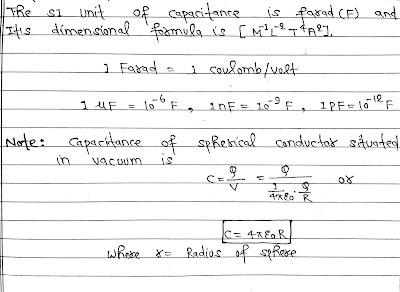 The SI Unit of capacitance is farad (F) and
It's dimensional formula is [M⁻¹L⁻²T⁴A²].
1 Farad = 1 coulomb/volt
1 μF = 10⁻⁶ F, 1nF = 10⁻⁹ F, 1PF = 10⁻¹² F
Note: Capacitance of spherical conductor situated
in vacuum is
C = Q/V = Q/(1/4πε₀ · Q/R) or
C = 4πε₀R
Where r = Radius of sphere